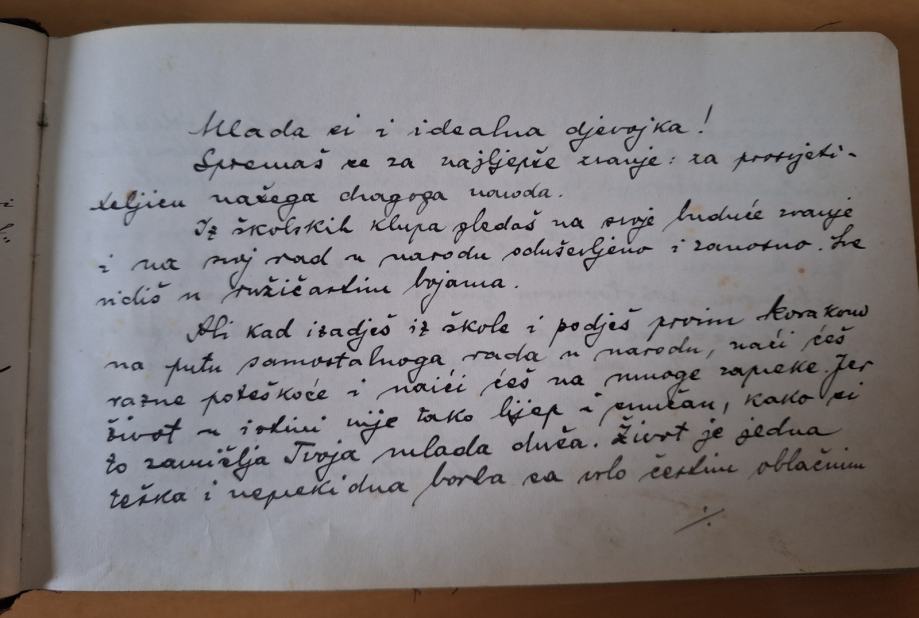 Mlada si i idealna djevojka!
Spremaš se za najljepše zvanje: za prosvjeti-
teljicu našega dragoga naroda.
Iz školskih klupa gledaš na svoje buduće zvanje
i na svoj rad u narodu oduševljeno i zanosno. Sve
vidiš u ružičastim bojama.
Ali kad izadješ iz škole i podješ prvim korakom
na putu samostalnoga rada u narodu, naći ćeš
razne poteškoće i naići ćeš na mnoge zapreke. Jer
život u istini nije tako lijep i sunčan, kako si
to zamišlja Tvoja mlada duša. Život je jedna
teška i neprekidna borba sa vrlo čestim oblačnim
./.